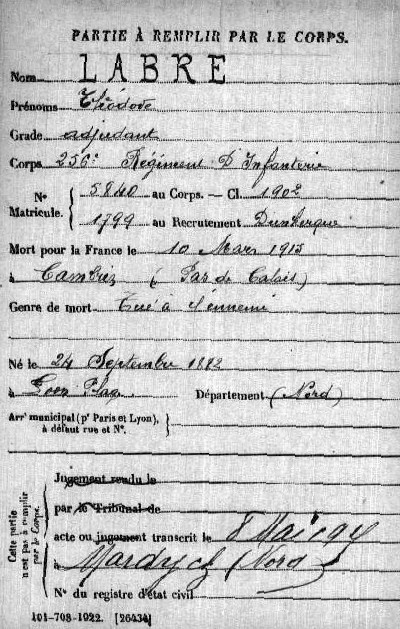 PARTIE À REMPLIR PAR LE CORPS.
Nom LABRE
Prénoms Théodore
Grade adjudant
Corps 256e Régiment D'Infanterie
N° Matricule. { 5840 au Corps. — Cl. 1902
1799 au Recrutement Dunkerque
Mort pour la France le 10 Mars 1915
à Cambrin ( Pas de Calais )
Genre de mort Tué à l'ennemi
Né le 24 Septembre 1882
à Loon Plage Département (Nord)
Arrt municipal (pr Paris et Lyon), }
à défaut rue et N°.
Cette partie n'est pas à remplir par le Corps. {
Jugement rendu le
par le Tribunal de
acte ou jugement transcrit le 8 Mai
à Mardyck (Nord)
N° du registre d'état civil
101-708-1922. [26434]